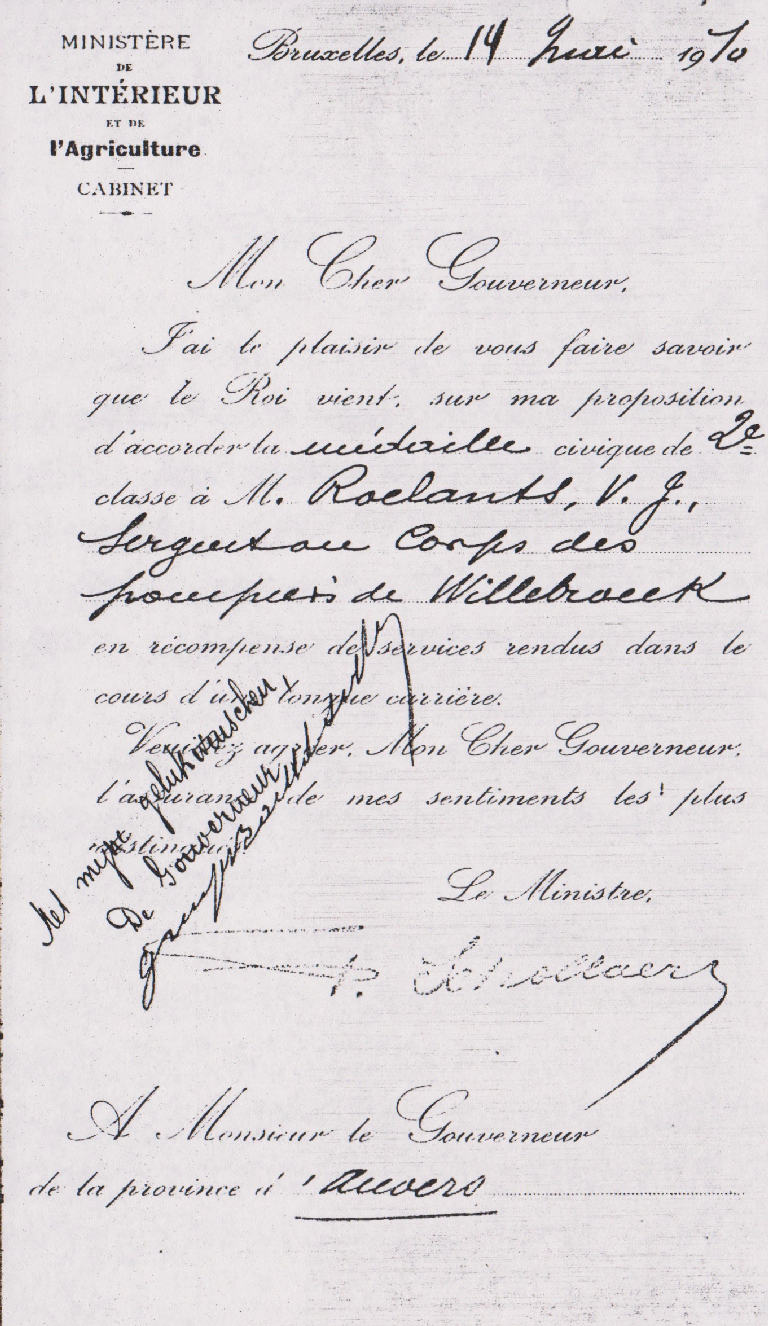 MINISTÈRE
DE
L'INTÉRIEUR
ET DE
l'Agriculture
CABINET
Bruxelles, le 14 Mai 1910
Mon Cher Gouverneur,
J'ai le plaisir de vous faire savoir
que le Roi vient, sur ma proposition
d'accorder la médaille civique de 2e
classe à M. Roelants, V. J.,
Sergent au Corps des
pompiers de Willebroeck
en récompense de services rendus dans le
cours d'une longue carrière.
Veuillez agréer, Mon Cher Gouverneur,
l'assurance de mes sentiments les plus
distingués.
Met mijne gelukwenschen,
De Gouverneur
Le Ministre,
F. Schollaert
A Monsieur le Gouverneur
de la province d'Anvers